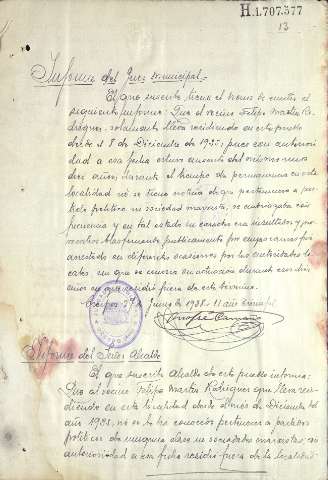 H.1.707.377
13
Informe del Juez Municipal.-
El que suscribe tiene el honor de emitir el
siguiente informe: Que el vecino Felipe Martin Ro-
driguez, solamente lleva residiendo en este pueblo
desde el 8 de Diciembre de 1935; pues con anteriori-
dad a esa fecha estuvo ausente del mismo unos
dos años, durante el tiempo de permanencia en esta
localidad no se tiene noticia de que perteneciera a par-
tido politico ni sociedad marxista, se embriagaba con
frecuencia y en tal estado de embriaguez
publicamente por cuya causa fue
arrestado en diferentes ocasiones por las autoridades lo-
cales, sin que se conozca su actuacion durante los dos
años en que residió fuera de este termino.
Junio de 1938. II año triunfal
Informe del Señor Alcalde
El que suscribe Alcalde de este pueblo informa:
Que el vecino Felipe Martin Rodriguez que lleva resi-
diendo en esta localidad desde Diciembre del
año 1935, no se le conoció pertenecer a partidos
politicos de ninguna clase ni sociedades marxistas, con
anterioridad a esa fecha residia fuera de la localidad